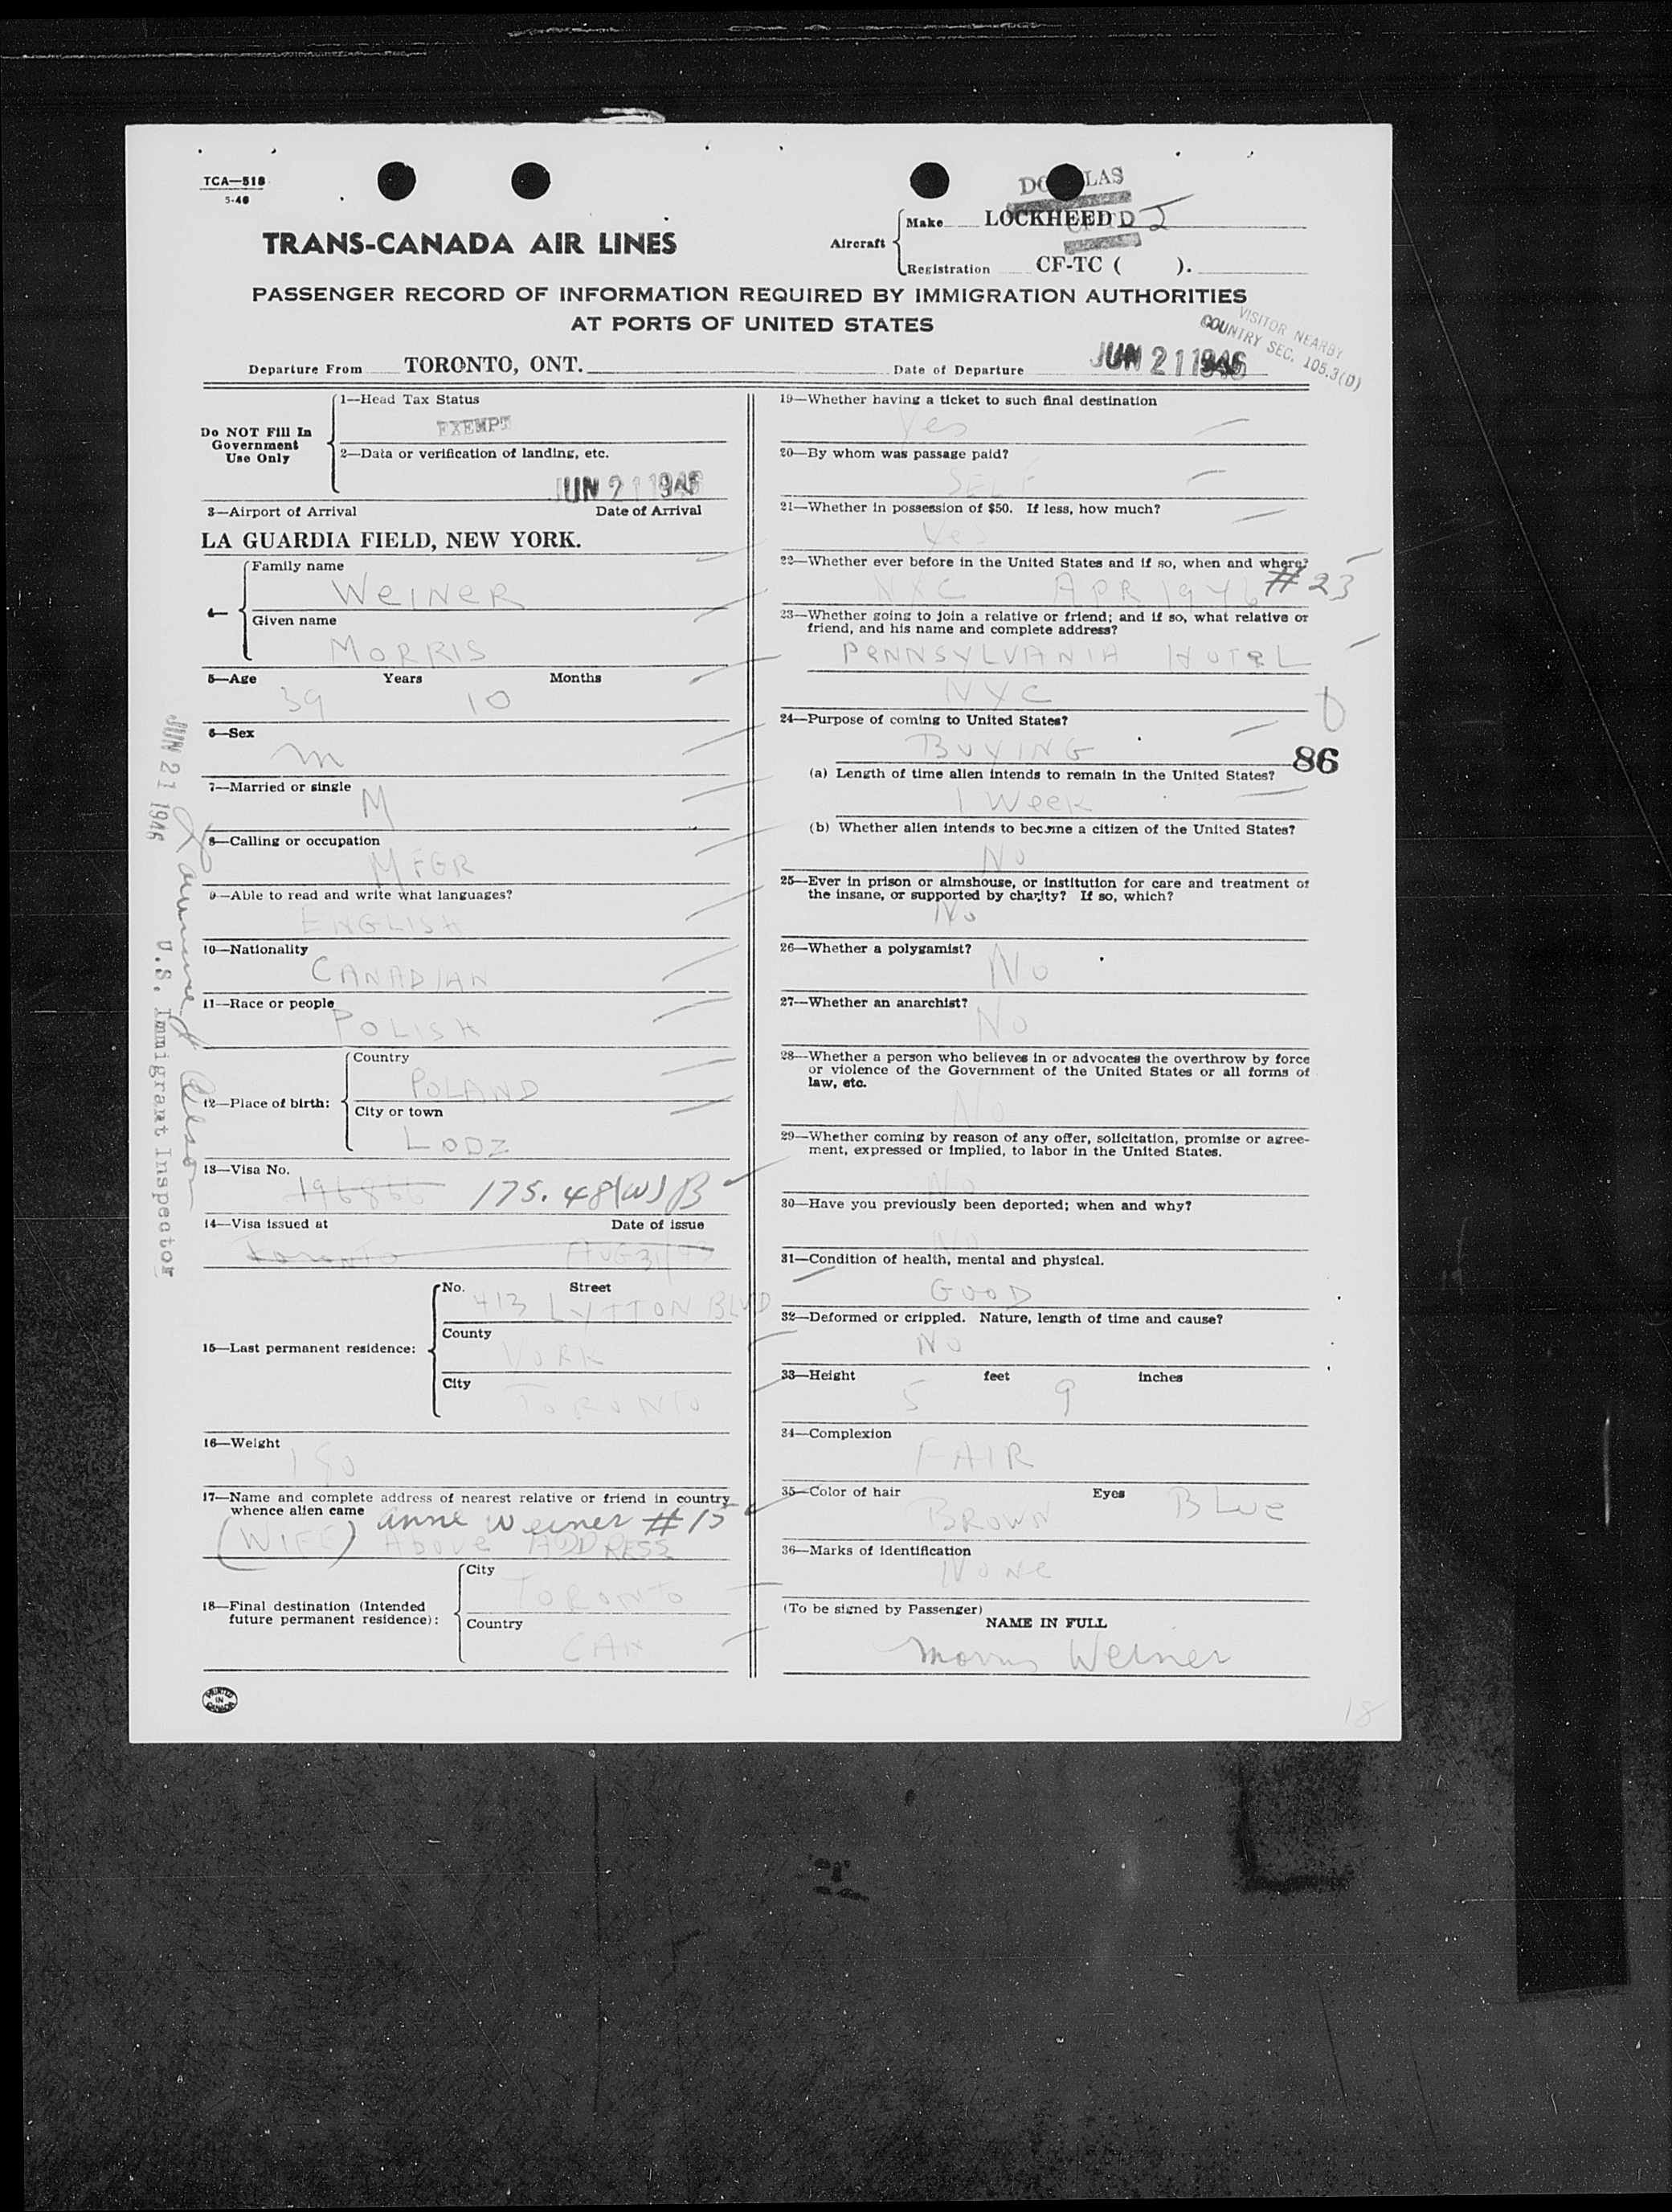 TCA—518
5-46
DOUGLAS
TRANS-CANADA AIR LINES
Aircraft
Make LOCKHEED D J
Registration CF-TC ( ).
PASSENGER RECORD OF INFORMATION REQUIRED BY IMMIGRATION AUTHORITIES
AT PORTS OF UNITED STATES
VISITOR NEARBY
COUNTRY SEC. 105.3(D)
Departure From TORONTO, ONT.
Date of Departure JUN 21 1946
Do NOT Fill In
Government
Use Only
1—Head Tax Status
EXEMPT
2—Data or verification of landing, etc.
JUN 21 1946
3—Airport of Arrival Date of Arrival
LA GUARDIA FIELD, NEW YORK.
4—
Family name
WEINER
Given name
MORRIS
5—Age Years Months
39 10
6—Sex
m
7—Married or single
M
8—Calling or occupation
MFGR
9—Able to read and write what languages?
ENGLISH
10—Nationality
CANADIAN
11—Race or people
POLISH
12—Place of birth:
Country
POLAND
City or town
LODZ
13—Visa No.
196866 175.48(W) B
14—Visa issued at Date of issue
Toronto AUG 31/45
15—Last permanent residence:
No. Street
413 LYTTON BLVD
County
YORK
City
TORONTO
16—Weight
180
17—Name and complete address of nearest relative or friend in country
whence alien came
anne Weiner #15
(WIFE) ABOVE ADDRESS
18—Final destination (Intended
future permanent residence):
City
TORONTO
Country
CAN
JUN 21 1946
U.S. Immigrant Inspector
19—Whether having a ticket to such final destination
Yes
20—By whom was passage paid?
SELF
21—Whether in possession of $50. If less, how much?
Yes
22—Whether ever before in the United States and if so, when and where?
NYC APR 1946 #23
23—Whether going to join a relative or friend; and if so, what relative or
friend, and his name and complete address?
PENNSYLVANIA HOTEL
NYC
24—Purpose of coming to United States?
BUYING
86
(a) Length of time alien intends to remain in the United States?
1 Week
(b) Whether alien intends to become a citizen of the United States?
No
25—Ever in prison or almshouse, or institution for care and treatment of
the insane, or supported by charity? If so, which?
No
26—Whether a polygamist?
No
27—Whether an anarchist?
No
28—Whether a person who believes in or advocates the overthrow by force
or violence of the Government of the United States or all forms of
law, etc.
No
29—Whether coming by reason of any offer, solicitation, promise or agree-
ment, expressed or implied, to labor in the United States.
No
30—Have you previously been deported; when and why?
No
31—Condition of health, mental and physical.
GOOD
32—Deformed or crippled. Nature, length of time and cause?
No
33—Height feet inches
5 9
34—Complexion
FAIR
35—Color of hair Eyes
BROWN BLUE
36—Marks of identification
NONE
(To be signed by Passenger)
NAME IN FULL
Morris Weiner
PRINTED
IN
CANADA
18